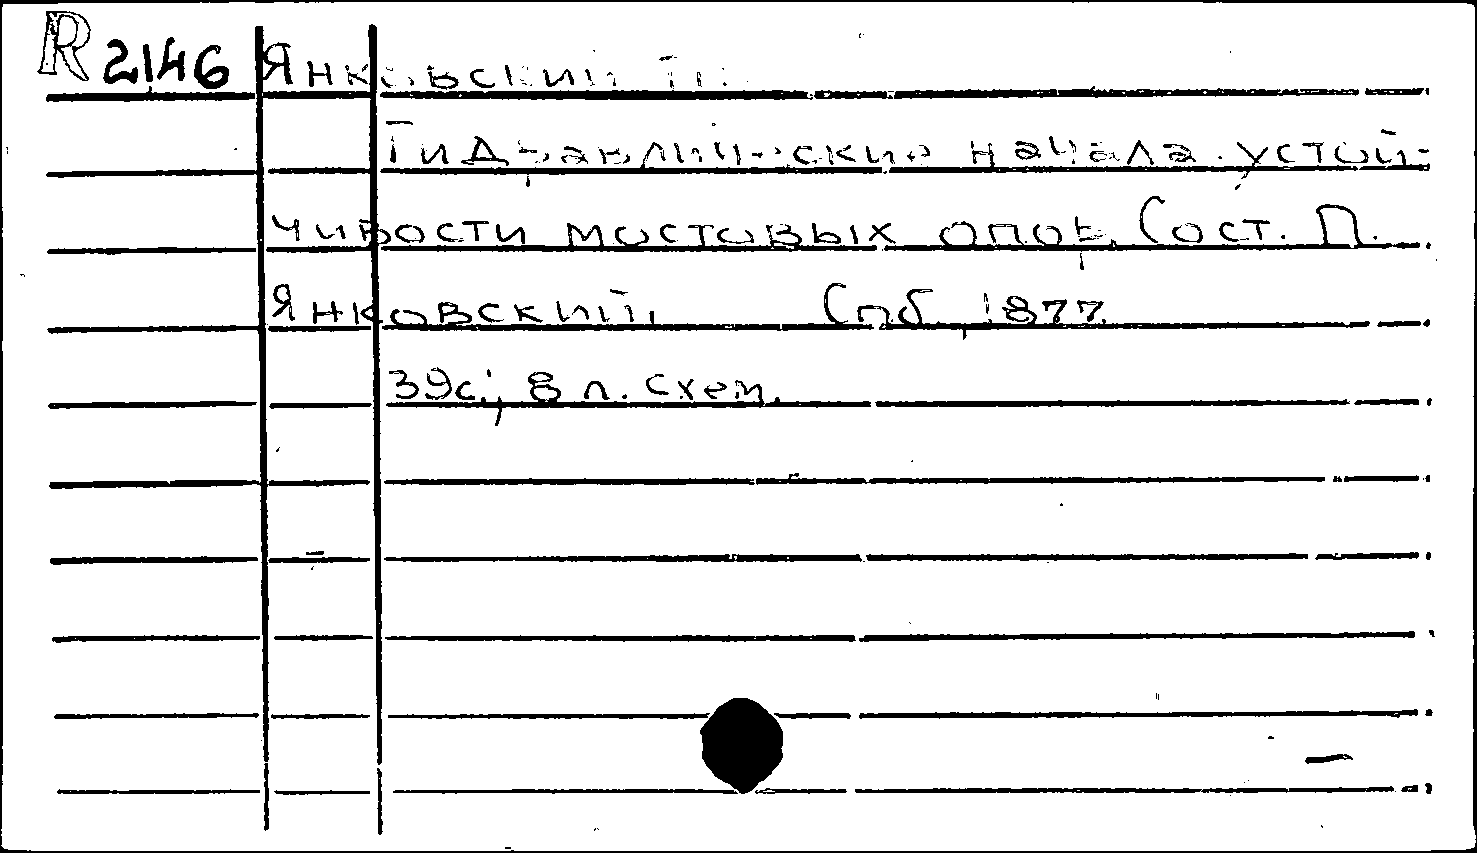 R 2146 Янковский П.
Гидравлические начала устой-
чивости мостовых опор. Сост. П.
Янковский. Спб, 1877.
39с., 8 л. схем.